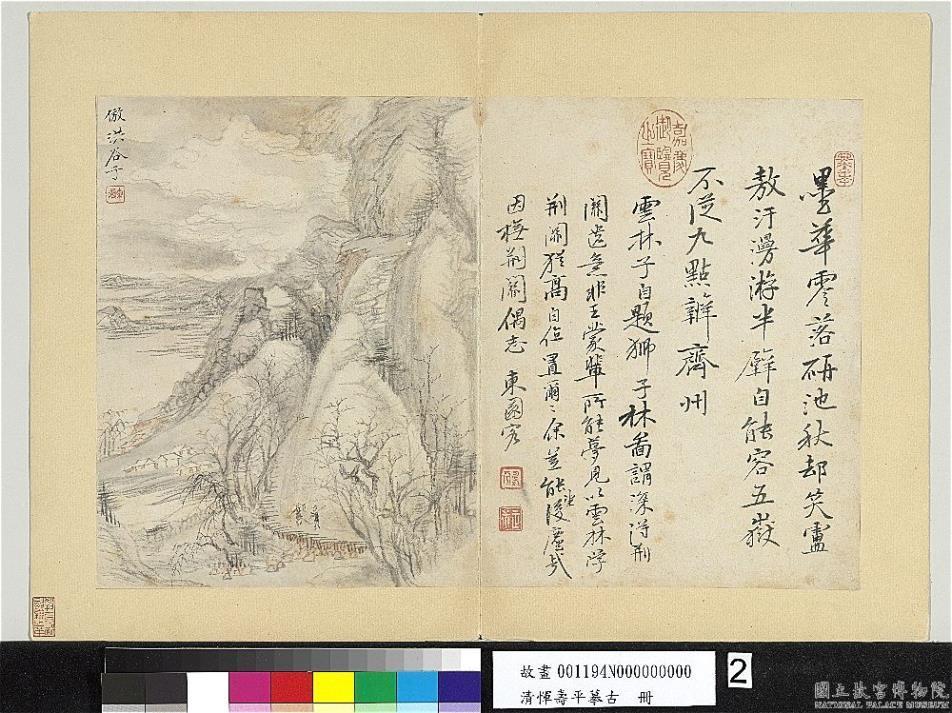 墨華零落硏池秋却笑盧
敖汗漫游半壁自能容五嶽
不從九點辨齊州
雲林子自題獅子林啚謂深淂荆
關遺意非王蒙輩所能夢見以雲林学
荆關猶高自位置爾〻余並能後塵哉
因橅荆關偶志 東園客
倣洪谷子
嘉慶御覽之寶
故畫 001194N000000000
清惲壽平摹古 冊
2
國立故宮博物院
NATIONAL PALACE MUSEUM